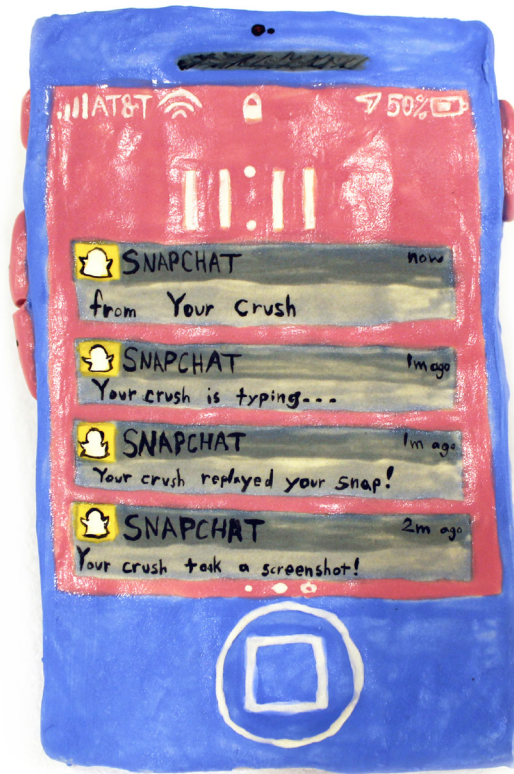 AT&T 50%
11:11
SNAPCHAT now
from Your Crush
SNAPCHAT 1m ago
Your crush is typing---
SNAPCHAT 1m ago
Your crush replayed your snap!
SNAPCHAT 2m ago
Your crush took a screenshot!